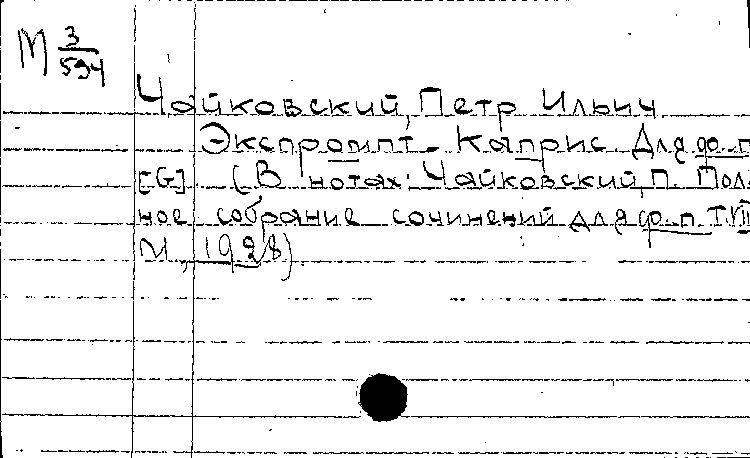 М 3/594
Чайковский, Петр Ильич
Экспромпт-Каприс. Для ф.-п
[G] (В нотах: Чайковский, П. Пол-
ное собрание сочинений для ф.-п. Т.VII
М., 1928).